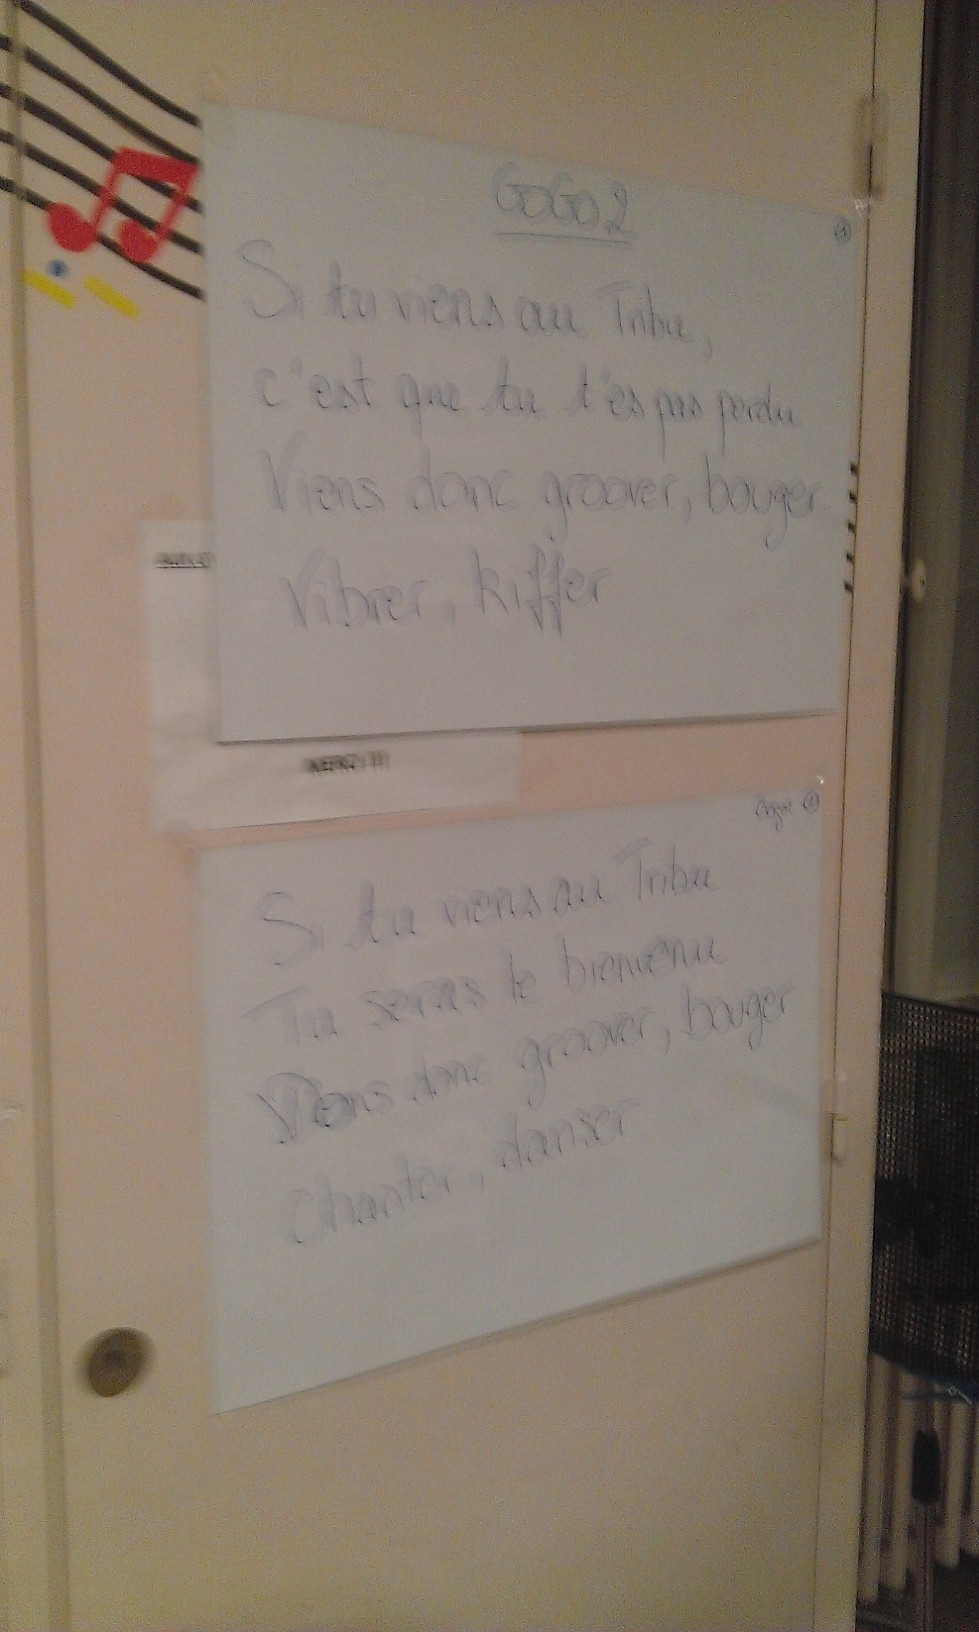 GOGO 2
Si tu viens au Tribu,
c'est que tu t'es pas perdu
Viens donc groover, bouger
Vibrer, kiffer
MERCI !!!
Si tu viens au Tribu
Tu seras le bienvenu
Viens donc groover, bouger
Chanter, danser